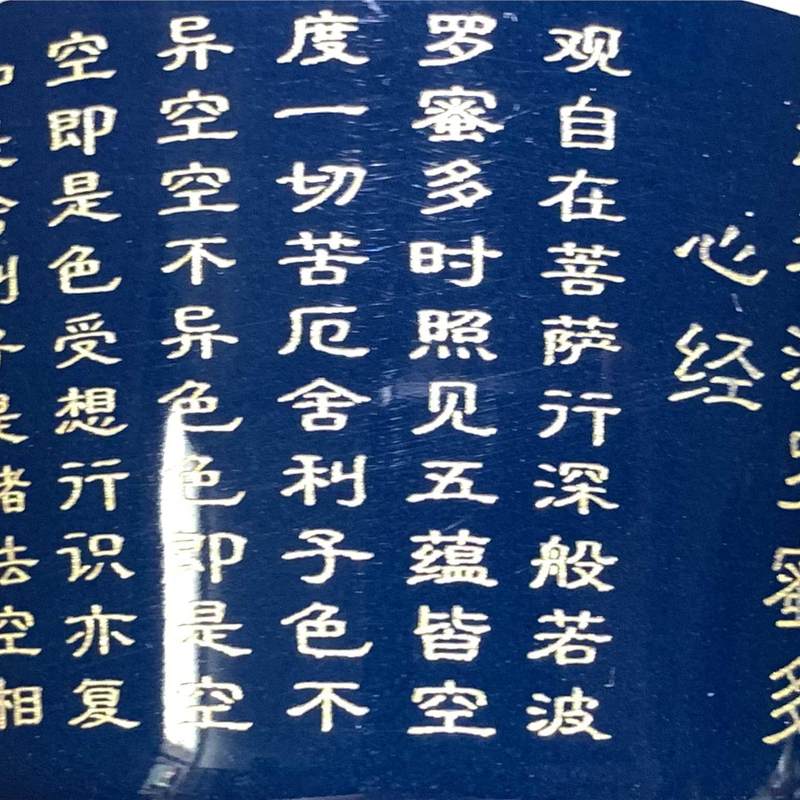 般若波罗蜜多
心经
观自在菩萨行深般若波
罗蜜多时照见五蕴皆空
度一切苦厄舍利子色不
异空空不异色色即是空
空即是色受想行识亦复
如是舍利子是诸法空相